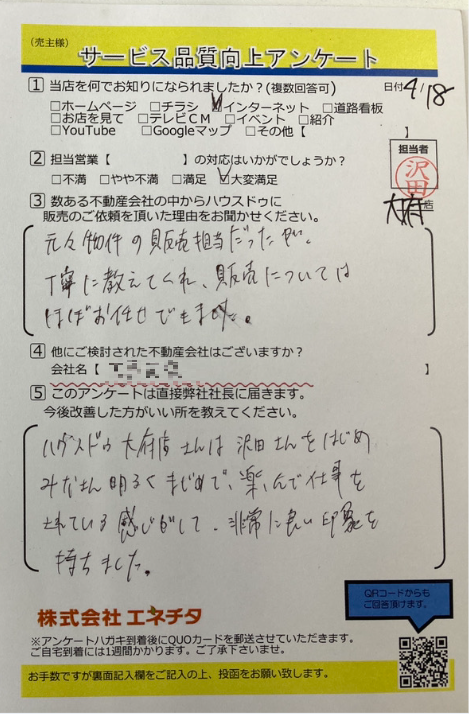 (売主様)
サービス品質向上アンケート
1 当店を何でお知りになられましたか?(複数回答可)
日付 4/18
□ホームページ □チラシ ☑インターネット □道路看板
□お店を見て □テレビCM □イベント □紹介
□YouTube □Googleマップ □その他【 】
担当者
沢田
大府店
2 担当営業【 】の対応はいかがでしょうか?
□不満 □やや不満 □満足 ☑大変満足
3 数ある不動産会社の中からハウスドゥに
販売のご依頼を頂いた理由をお聞かせください。
元々物件の販売担当だったが、
丁寧に教えてくれ、販売については
ほぼお任せできました。
4 他にご検討された不動産会社はございますか?
会社名【 】
5 このアンケートは直接弊社社長に届きます。
今後改善した方がいい所を教えてください。
ハウスドゥ大府店さんは沢田さんをはじめ
みなさん明るくまじめで、楽しんで仕事を
されている感じがして、非常に良い印象を
持ちました。
QRコードからも
ご回答頂けます。
株式会社エネチタ
※アンケートハガキ到着後にQUOカードを郵送させていただきます。
ご自宅到着には1週間かかります。ご了承下さいませ。
お手数ですが裏面記入欄をご記入の上、投函をお願い致します。